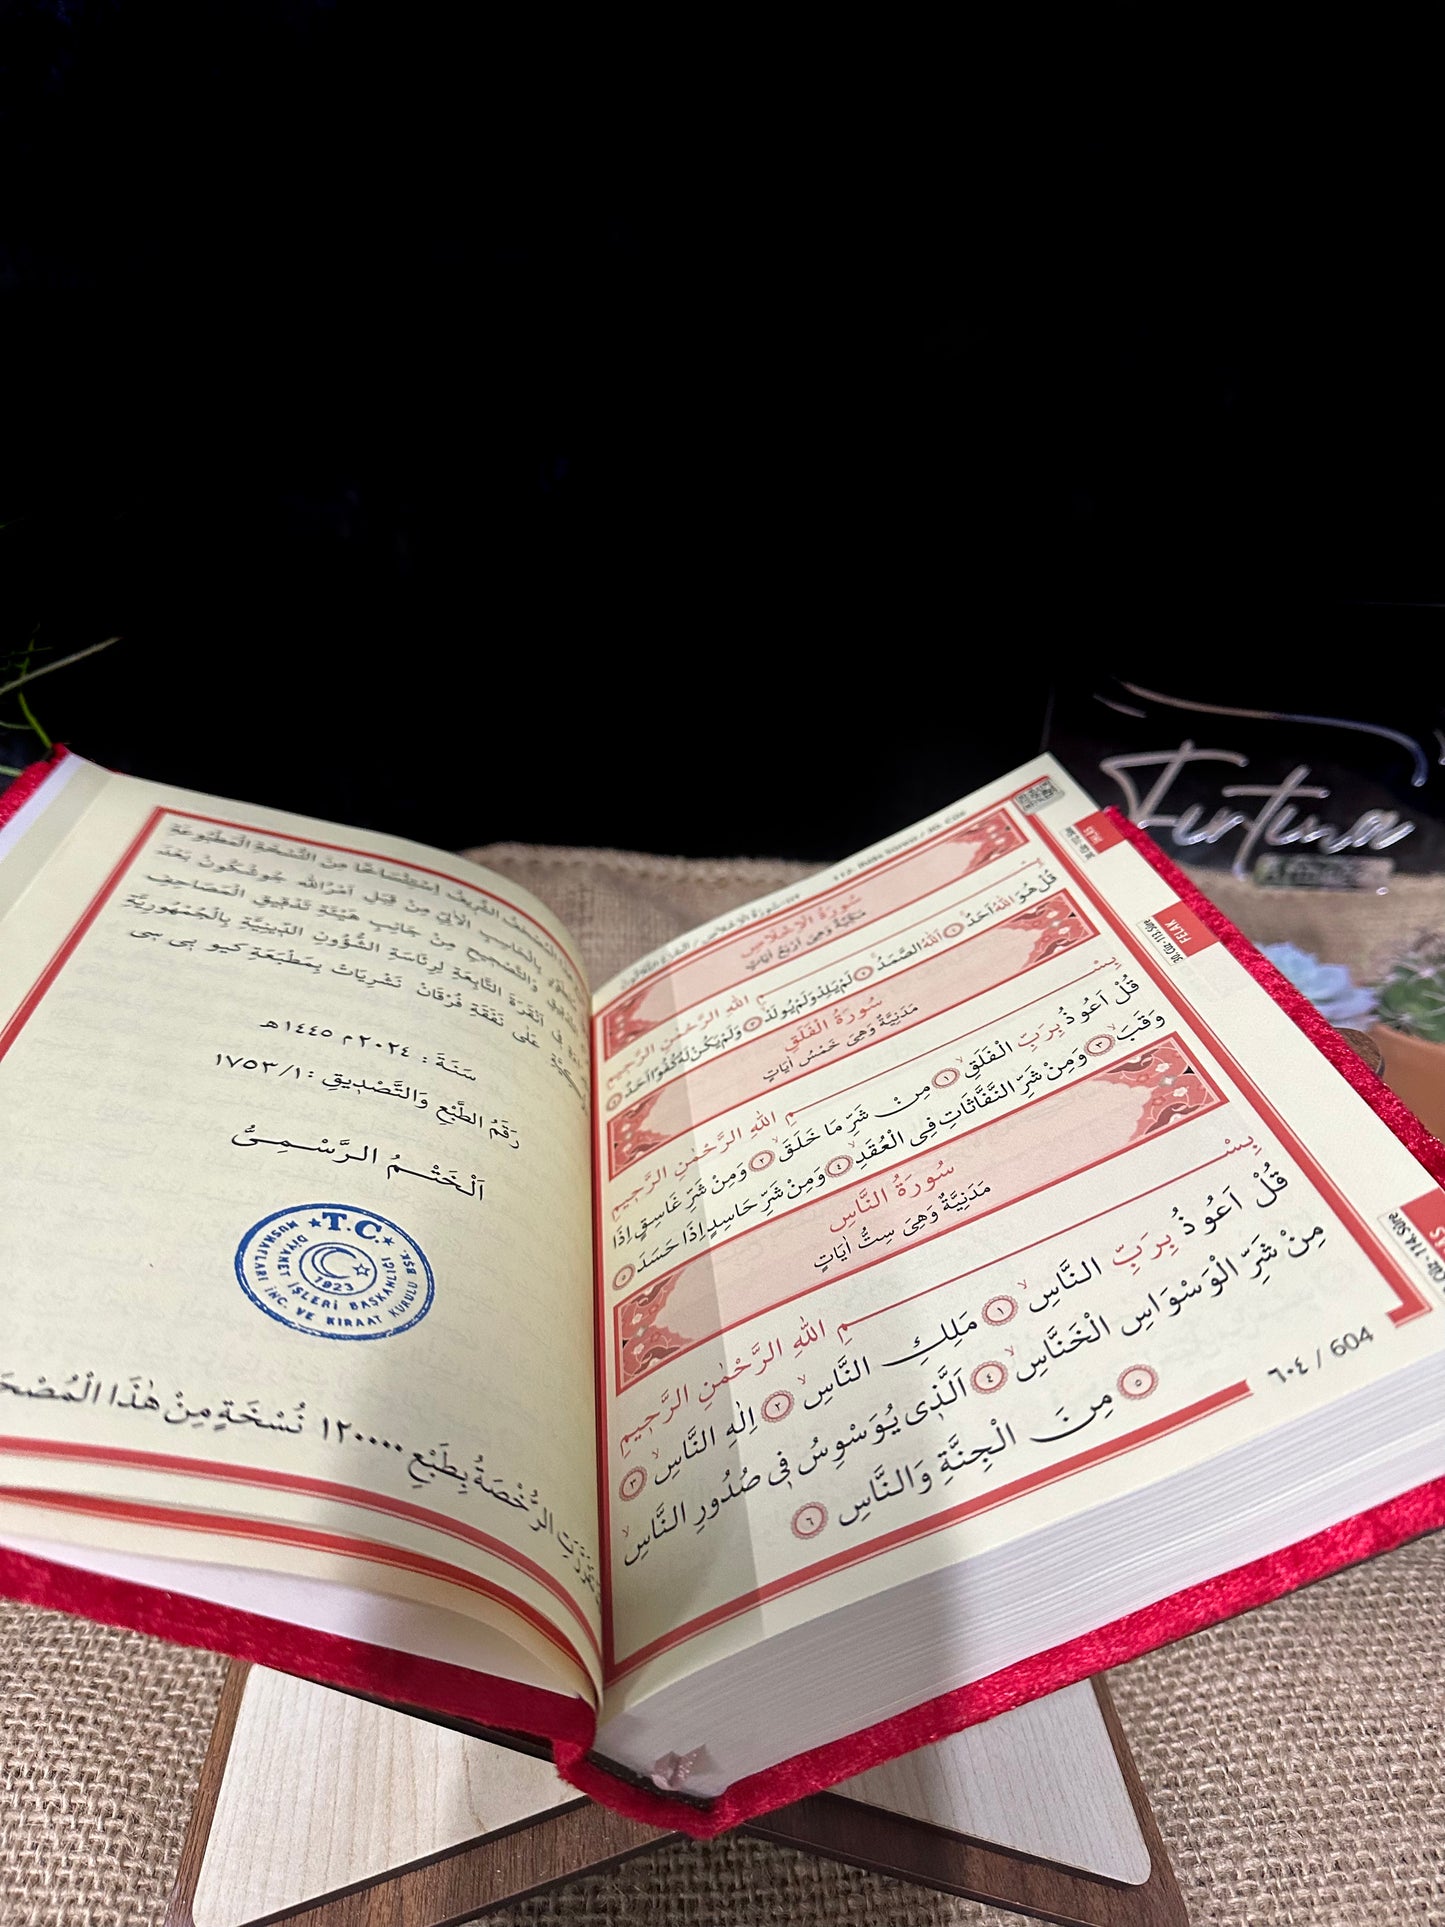 سُورَةُ الْاِخْلَاصِ
مَكِّيَّةٌ وَهِىَ اَرْبَعُ اٰيَاتٍ
بِسْمِ اللّٰهِ الرَّحْمٰنِ الرَّحٖيمِ
قُلْ هُوَ اللّٰهُ اَحَدٌ ﴿١﴾ اَللّٰهُ الصَّمَدُ ﴿٢﴾ لَمْ يَلِدْ وَلَمْ يُولَدْ ﴿٣﴾ وَلَمْ يَكُنْ لَهُ كُفُوًا اَحَدٌ ﴿٤﴾
سُورَةُ الْفَلَقِ
مَدَنِيَّةٌ وَهِىَ خَمْسُ اٰيَاتٍ
بِسْمِ اللّٰهِ الرَّحْمٰنِ الرَّحٖيمِ
قُلْ اَعُوذُ بِرَبِّ الْفَلَقِ ﴿١﴾ مِنْ شَرِّ مَا خَلَقَ ﴿٢﴾ وَمِنْ شَرِّ غَاسِقٍ اِذَا
وَقَبَ ﴿٣﴾ وَمِنْ شَرِّ النَّفَّاثَاتِ فِى الْعُقَدِ ﴿٤﴾ وَمِنْ شَرِّ حَاسِدٍ اِذَا حَسَدَ ﴿٥﴾
سُورَةُ النَّاسِ
مَدَنِيَّةٌ وَهِىَ سِتُّ اٰيَاتٍ
بِسْمِ اللّٰهِ الرَّحْمٰنِ الرَّحٖيمِ
قُلْ اَعُوذُ بِرَبِّ النَّاسِ ﴿١﴾ مَلِكِ النَّاسِ ﴿٢﴾ اِلٰهِ النَّاسِ ﴿٣﴾
مِنْ شَرِّ الْوَسْوَاسِ الْخَنَّاسِ ﴿٤﴾ اَلَّذٖى يُوَسْوِسُ فٖى صُدُورِ النَّاسِ
﴿٥﴾ مِنَ الْجِنَّةِ وَالنَّاسِ ﴿٦﴾
٦٠٤ / 604
İHLAS
FELAK
30.Cüz - 113.Sûre
Cüz - 114.Sûre
اِسْتِنْسَاخًا مِنَ النُّسْخَةِ الْمَطْبُوعَةِ
بِالْحَاسِبِ الْاٰلِىِّ مِنْ قِبَلِ اَمْرُ اللّٰه جُوشْكُونْ بَعْدَ
وَالتَّصْحٖيحِ مِنْ جَانِبِ هَيْئَةِ تَدْقٖيقِ الْمَصَاحِفِ
فٖى اَنْقَرَةَ التَّابِعَةِ لِرِئَاسَةِ الشُّؤُونِ الدّٖينِيَّةِ بِالْجُمْهُورِيَّةِ
عَلٰى نَفَقَةِ فُرْقَانْ نَشْرِيَاتْ بِمَطْبَعَةِ
سَنَةَ : ٢٠٢٤م ١٤٤٥هـ
رَقَمُ الطَّبْعِ وَالتَّصْدٖيقِ : ١٧٥٣/١
اَلْخَتْمُ الرَّسْمِىُّ
T.C.
DİYANET İŞLERİ BAŞKANLIĞI
MUSHAFLARI İNC. VE KIRAAT KURULU BŞK.
1923
الرُّخْصَةُ بِطَبْعِ ١٢٠٠٠٠ نُسْخَةٍ مِنْ هٰذَا الْمُصْحَ